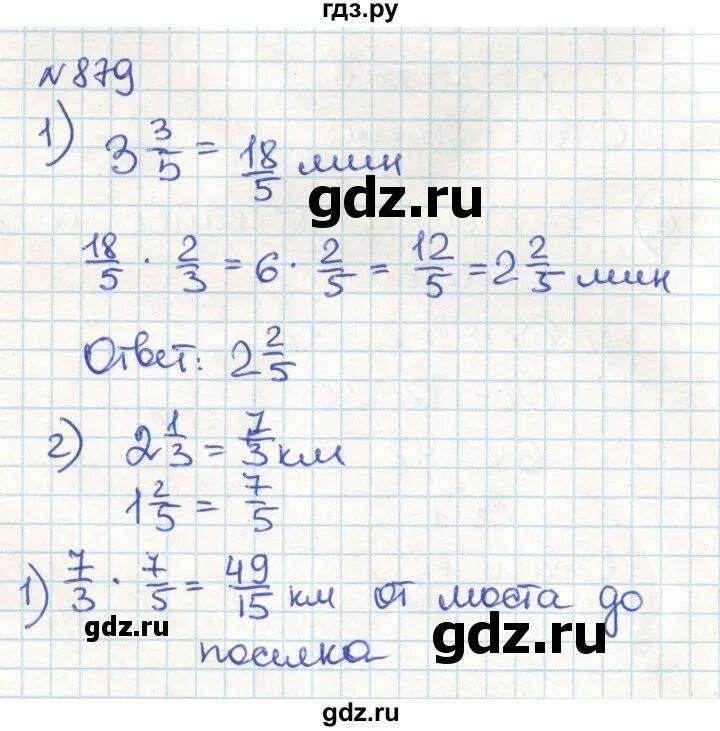 гдз.ру
№ 879
1) 3 3/5 = 18/5 мин
gdz.ru
18/5 · 2/3 = 6 · 2/5 = 12/5 = 2 2/5 мин
Ответ: 2 2/5
2) 2 1/3 = 7/3 км
1 2/5 = 7/5
1) 7/3 · 7/5 = 49/15 км от моста до
gdz.ru
gdz.ru
поселка
gdz.ru